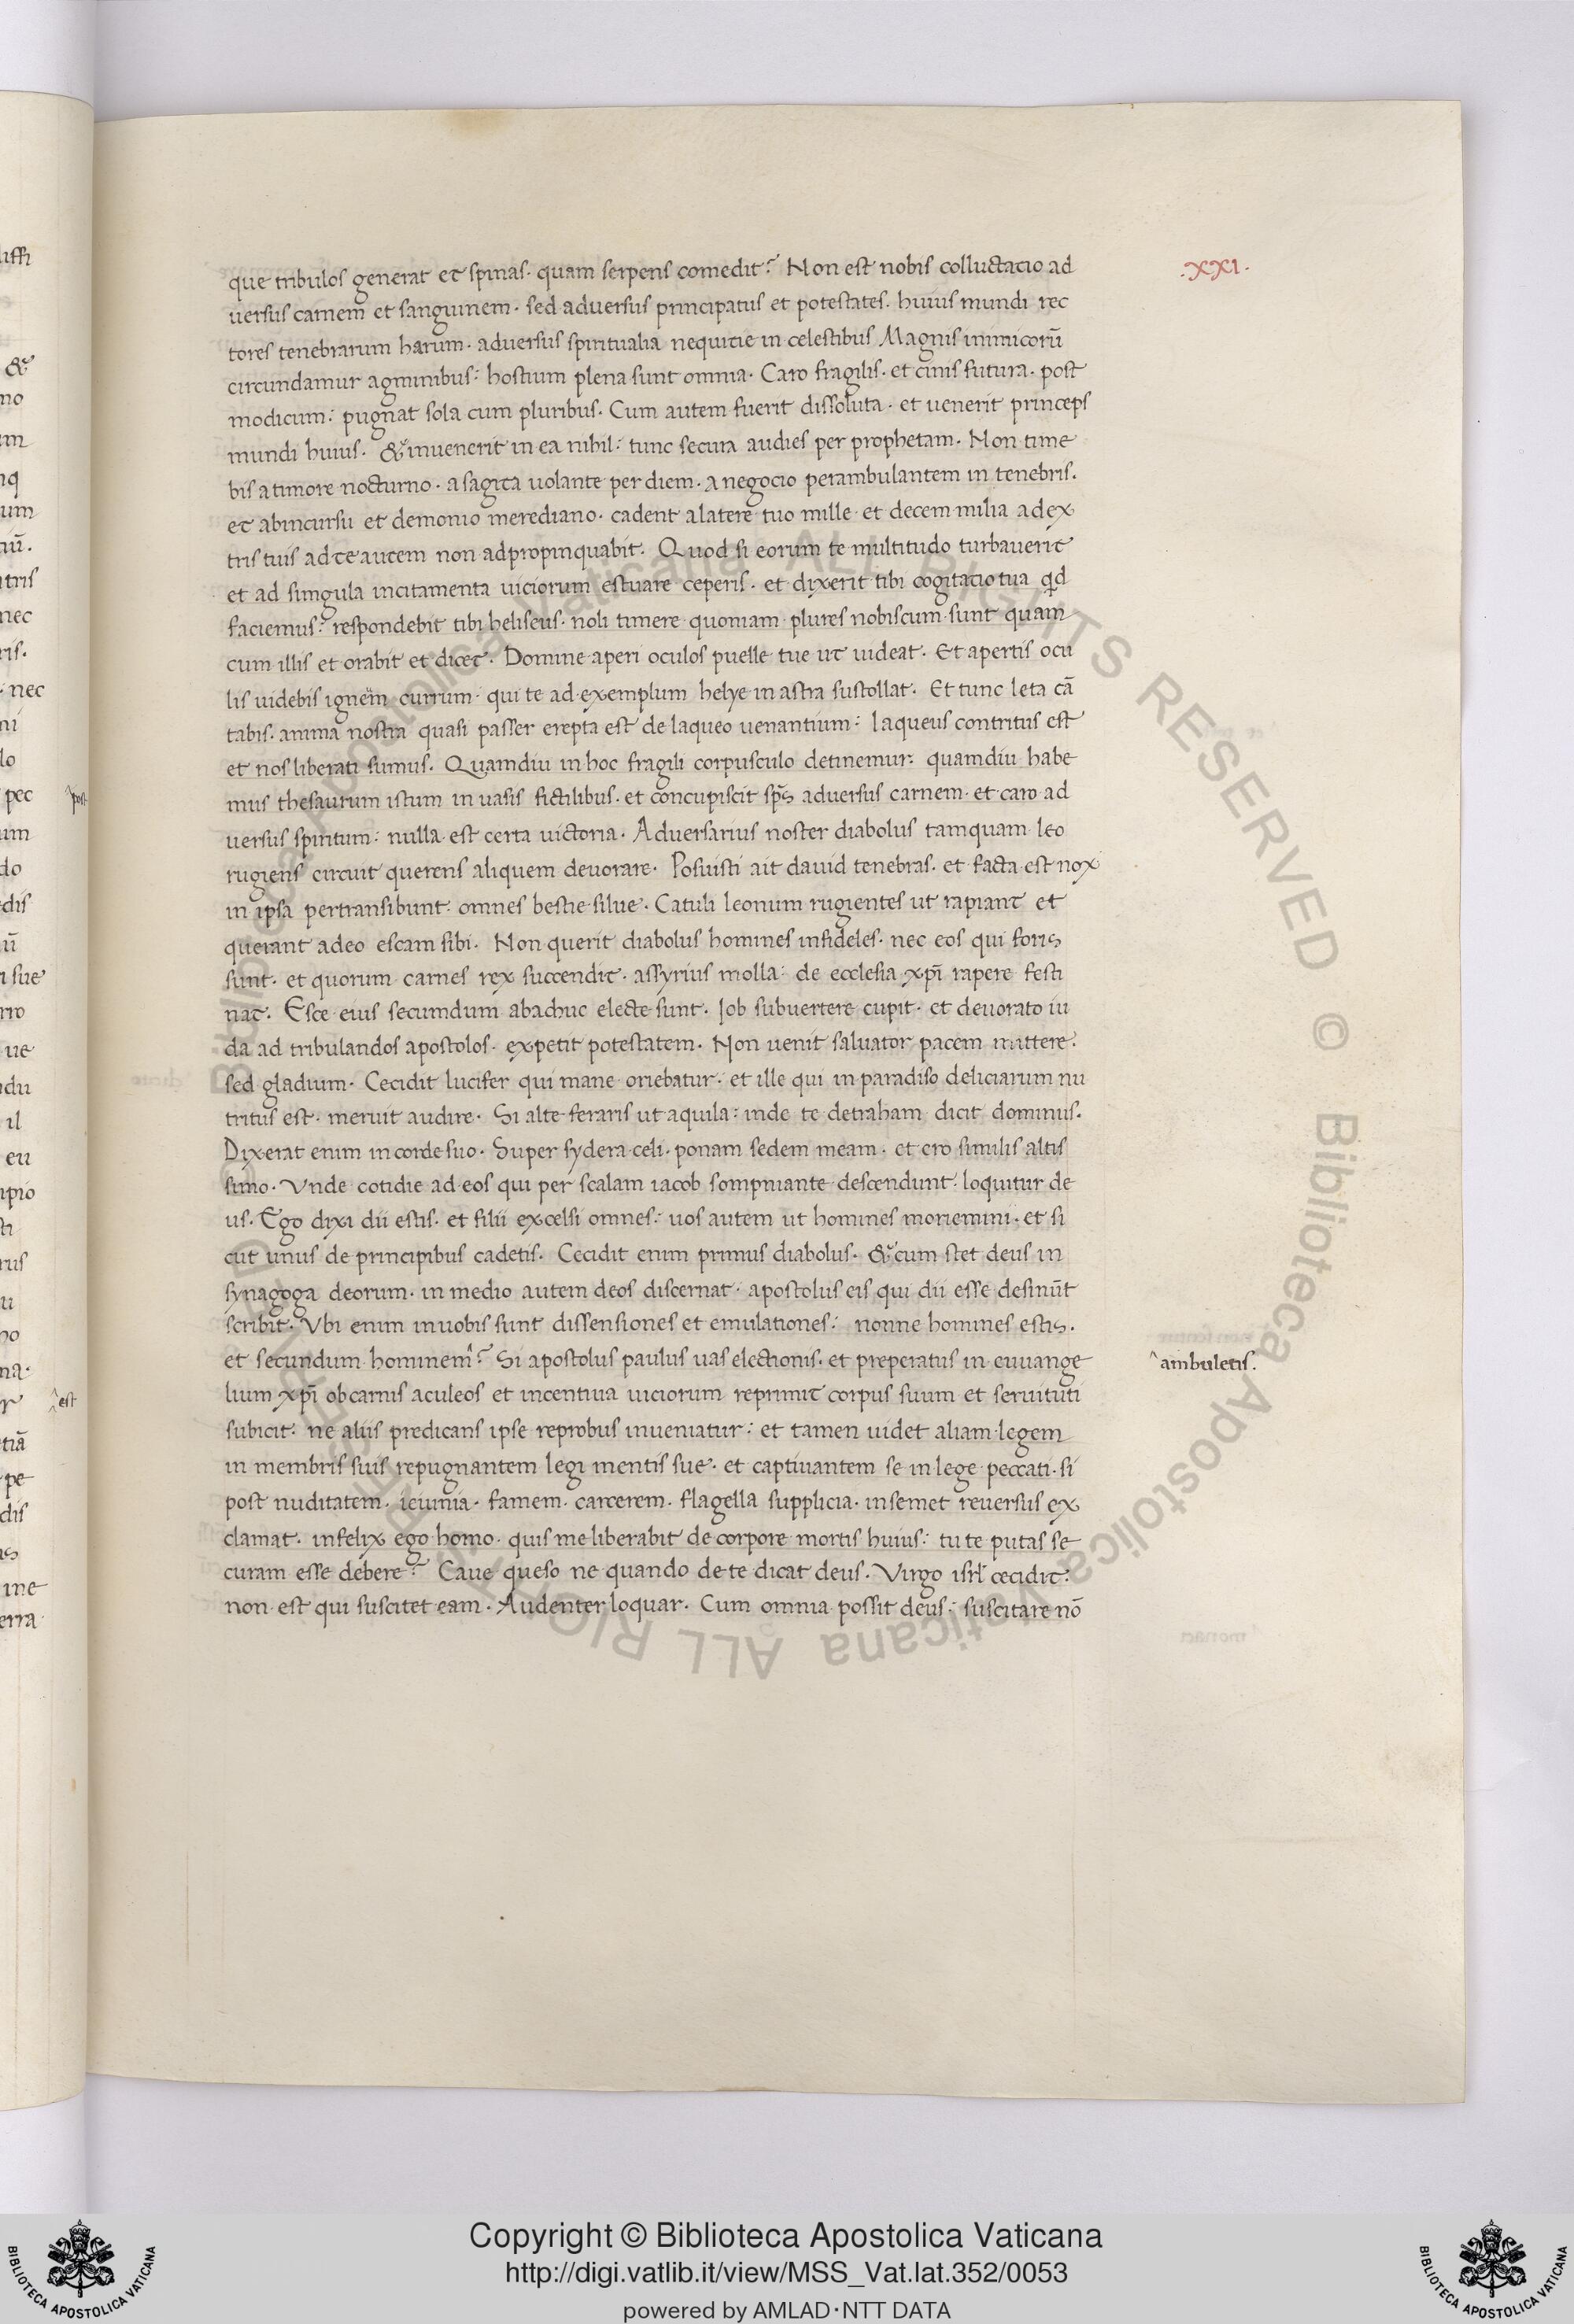 .XXI.
que tribulos generat et spinas. quam serpens comedit? Non est nobis colluctatio ad
uersus carnem et sanguinem. sed adversus principatus et potestates. huius mundi rec
tores tenebrarum harum. adversus spiritualia nequitie in celestibus Magnis inimicorū
circundamur agminibus: hostium plena sunt omnia. Caro fragilis. et cinis futura. post
modicum: pugnat sola cum pluribus. Cum autem fuerit dissoluta. et uenerit princeps
mundi huius. & inuenerit in ea nihil: tunc secura audies per prophetam. Non time
bis a timore nocturno. a sagita uolante per diem. a negocio perambulantem in tenebris.
et ab incursu et demonio merediano. cadent a latere tuo mille et decem milia a dex
tris tuis ad te autem non adpropinquabit. Quod si eorum te multitudo turbauerit
et ad singula incitamenta uiciorum estuare ceperis. et dixerit tibi cogitacio tua qd
faciemus? respondebit tibi heliseus. noli timere quoniam plures nobiscum sunt quam
cum illis et orabit et dicet. Domine aperi oculos puelle tue ut uideat. Et apertis ocu
lis uidebis igneum currum. qui te ad exemplum helye in astra sustollat. Et tunc leta cā
tabis. anima nostra quasi passer erepta est de laqueo uenantium: laqueus contritus est
et nos liberati sumus. Quamdiu in hoc fragili corpusculo detinemur: quamdiu habe
mus thesaurum istum in uasis fictilibus. et concupiscit sp̄s adversus carnem. et caro ad
uersus spiritum: nulla est certa uictoria. Adversarius noster diabolus tamquam leo
rugiens circuit querens aliquem devorare. Posuisti ait david tenebras. et facta est nox
in ipsa pertransibunt omnes bestie silue. Catuli leonum rugientes ut rapiant et
querant a deo escam sibi. Non querit diabolus homines infideles. nec eos qui foris
sunt. et quorum carnes rex succendit. assyrius in olla: de ecclesia xp̄i rapere festi
nat. Esce eius secundum abachuc electe sunt. Job subuertere cupit. et devorato iu
da ad tribulandos apostolos. expetit potestatem. Non uenit saluator pacem mittere:
sed gladium. Cecidit lucifer qui mane oriebatur. et ille qui in paradiso deliciarum nu
tritus est. meruit audire. Si alte feraris ut aquila: inde te detraham dicit dominus.
Dixerat enim in corde suo. Super sydera celi. ponam sedem meam. et ero similis altis
simo. Vnde cotidie ad eos qui per scalam iacob sompniante descendunt: loquitur de
us. Ego dixi dii estis. et filii excelsi omnes: uos autem ut homines moriemini. et si
cut unus de principibus cadetis. Cecidit enim primus diabolus. & cum stet deus in
synagoga deorum. in medio autem deos discernat. apostolus eis qui dii esse desinūt
scribit. Vbi enim in uobis sunt dissensiones et emulationes: nonne homines estis.
et secundum hominem^? Si apostolus paulus uas electionis. et preperatus in euuange
^ambuletis.
lium xp̄i ob carnis aculeos et incentiua uiciorum reprimit corpus suum et seruituti
subicit: ne aliis predicans ipse reprobus inueniatur: et tamen uidet aliam legem
in membris suis repugnantem legi mentis sue. et captiuantem se in lege peccati. si
post nuditatem. ieiunia. famem. carcerem. flagella supplicia. in semet reuersus ex
clamat. infelix ego homo. quis me liberabit de corpore mortis huius: tu te putas se
curam esse debere? Caue queso ne quando de te dicat deus. Virgo isrl cecidit:
non est qui suscitet eam. Audenter loquar. Cum omnia possit deus: suscitare nō
Copyright © Biblioteca Apostolica Vaticana
http://digi.vatlib.it/view/MSS_Vat.lat.352/0053
powered by AMLAD·NTT DATA